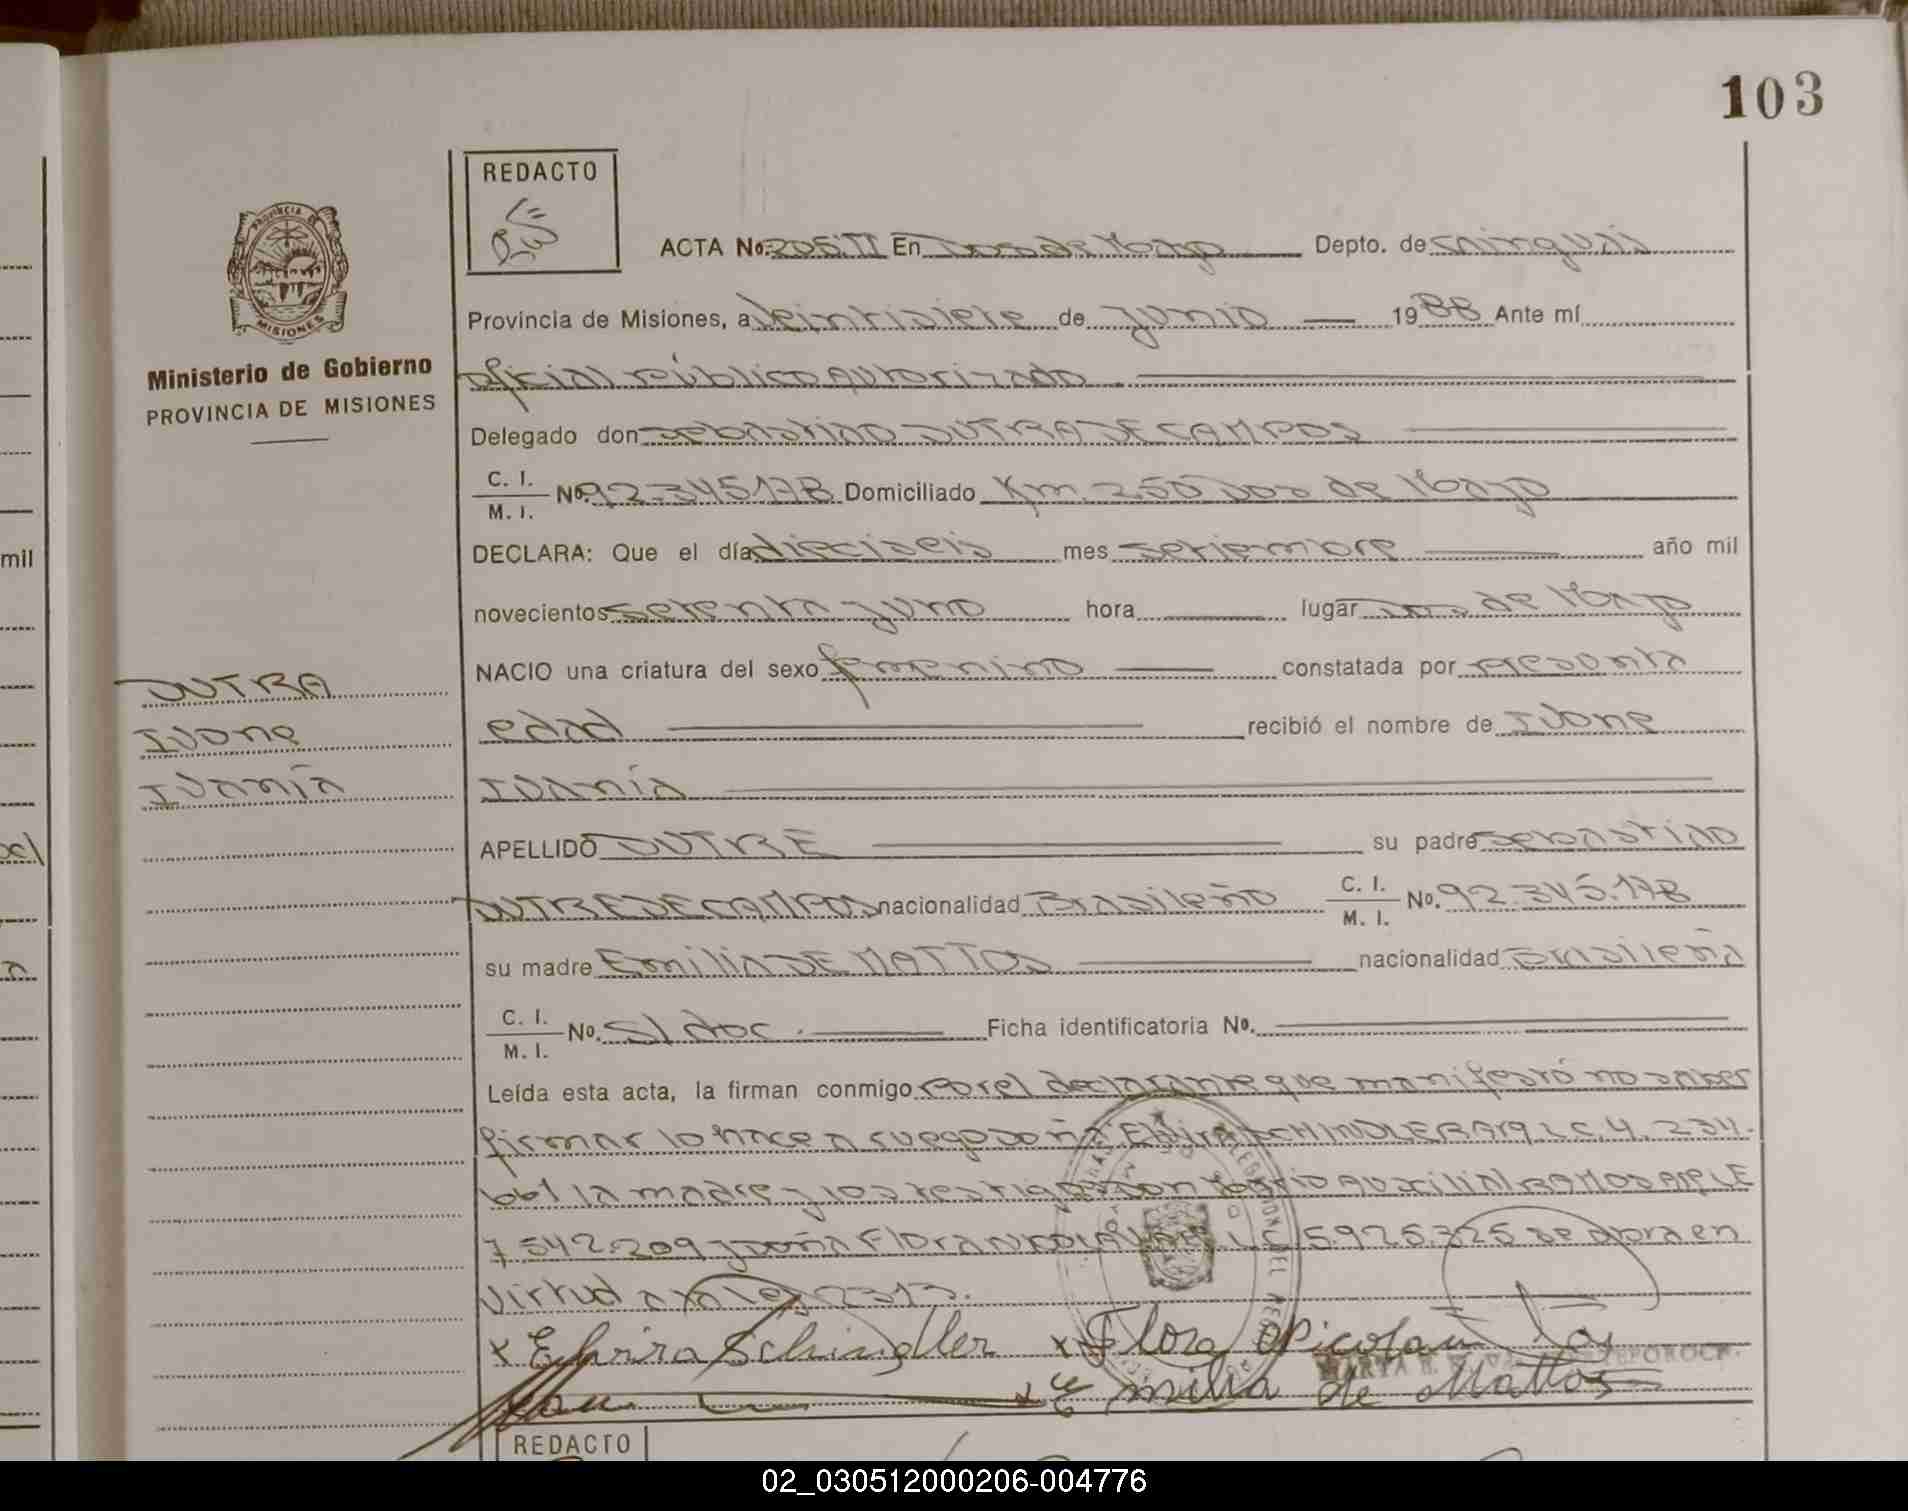 103
REDACTO
PROVINCIA DE
MISIONES
Ministerio de Gobierno
PROVINCIA DE MISIONES
ACTA No. 205.II En Dos de Mayo Depto. de Cainguás
Provincia de Misiones, a Veintisiete de junio 1988 Ante mí
oficial público autorizado
Delegado don Sebastiao DUTRA DE CAMPOS
C. I. / M. I. No. 92.345.178 Domiciliado Km. 250 Dos de Mayo
DECLARA: Que el día dieciseis mes setiembre año mil
novecientos setenta y uno hora lugar Dos de Mayo
NACIO una criatura del sexo femenino constatada por presunta
edad recibió el nombre de Ivone
Ivania
APELLIDO DUTRE su padre Sebastiao
DUTRE DE CAMPOS nacionalidad Brasileño C. I. / M. I. No. 92.345.178
su madre Emilia DE MATTOS nacionalidad Brasileña
C. I. / M. I. No. S/doc. Ficha identificatoria No.
Leída esta acta, la firman conmigo por el declarante que manifestó no saber
firmar lo hace a ruego doña Elvira SCHINDLER Arg. L.C. 4.234.
661 la madre y los testigos don Mario Auxilial RAMOS Arg. LE
7.542.209 y doña Flora NICOLAU L.C. 5.925.325 se labra en
virtud a la ley 2313.
DUTRA
Ivone
Ivania
x Elvira Schindler x Flora Nicolau
x Emilia de Mattos
REDACTO
mil
02_030512000206-004776